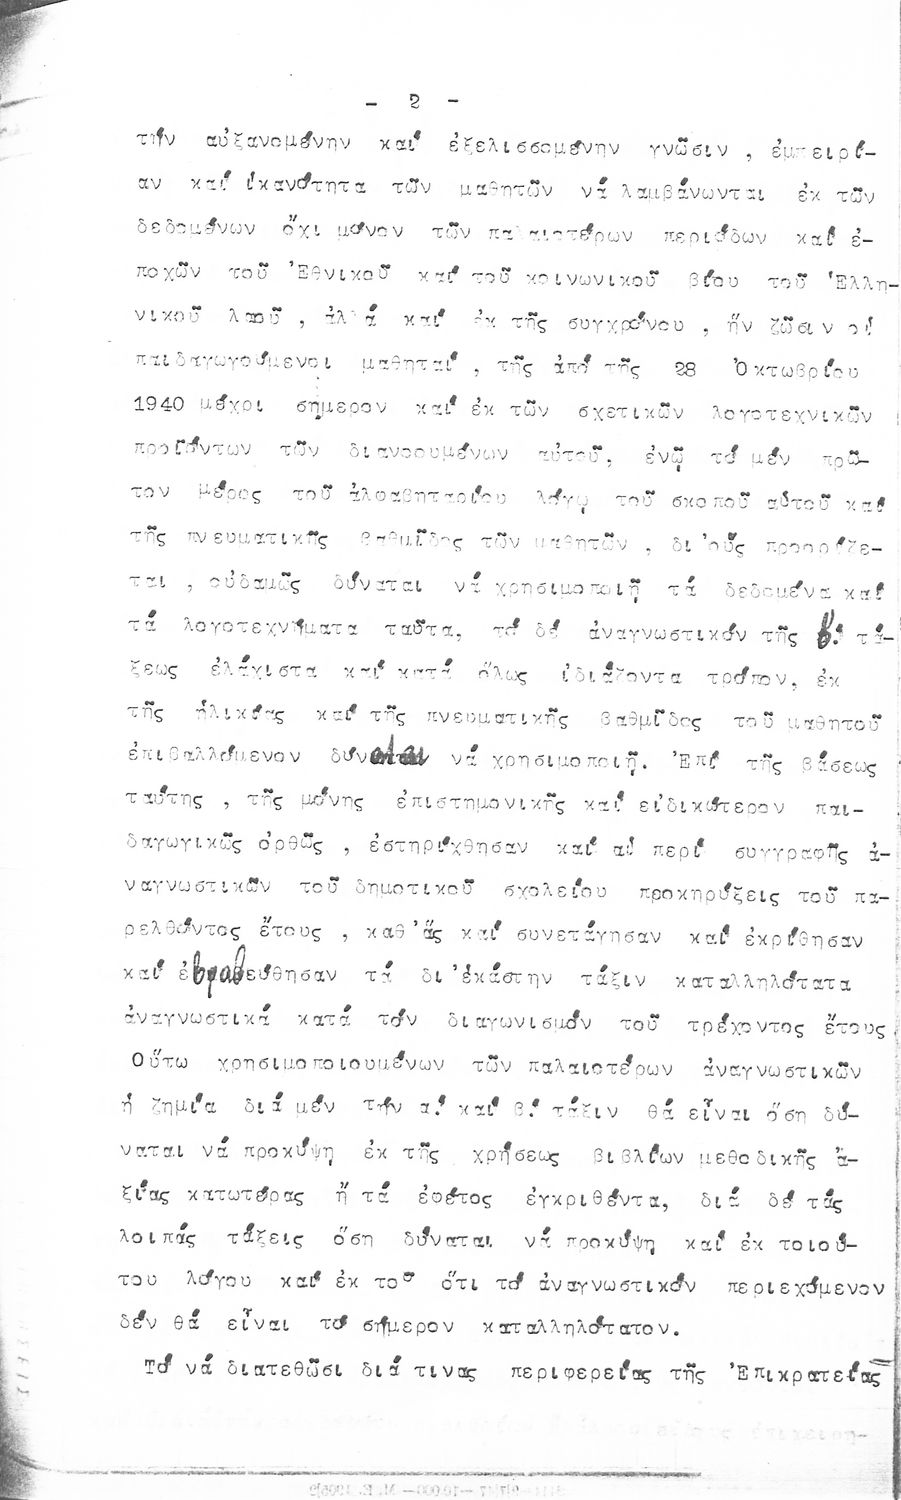 - 2 -
τήν αὐξανομένην καί ἐξελισσομένην γνῶσιν , ἐμπειρί-
αν καί ἱκανότητα τῶν μαθητῶν νά λαμβάνωνται ἐκ τῶν
δεδομένων ὄχι μόνον τῶν παλαιοτέρων περιόδων καί ἐ-
ποχῶν τοῦ Ἐθνικοῦ καί τοῦ κοινωνικοῦ βίου τοῦ Ἑλλη-
νικοῦ λαοῦ , ἀλλά καί ἐκ τῆς συγχρόνου , ἥν ζῶσιν οἱ
παιδαγωγούμενοι μαθηταί , τῆς ἀπό τῆς 28 Ὀκτωβρίου
1940 μέχρι σήμερον καί ἐκ τῶν σχετικῶν λογοτεχνικῶν
προϊόντων τῶν διανοουμένων αὐτοῦ, ἐνῷ τό μέν πρῶ-
τον μέρος τοῦ ἀλφαβηταρίου λόγῳ τοῦ σκοποῦ αὐτοῦ καί
τῆς πνευματικῆς βαθμῖδος τῶν μαθητῶν , δι'οὕς προορίζε-
ται , οὐδαμῶς δύναται νά χρησιμοποιῇ τά δεδομένα καί
τά λογοτεχνήματα ταῦτα, τό δέ ἀναγνωστικόν τῆς β! τά-
ξεως ἐλάχιστα καί κατά ὅλως ἰδιάζοντα τρόπον, ἐκ
τῆς ἡλικίας καί τῆς πνευματικῆς βαθμῖδος τοῦ μαθητοῦ
ἐπιβαλλόμενον δύναται νά χρησιμοποιῇ. Ἐπί τῆς βάσεως
ταύτης , τῆς μόνης ἐπιστημονικῆς καί εἰδικώτερον παι-
δαγωγικῶς ὀρθῶς , ἐστηρίχθησαν καί αἱ περί συγγραφῆς ἀ-
ναγνωστικῶν τοῦ δημοτικοῦ σχολείου προκηρύξεις τοῦ πα-
ρελθόντος ἔτους , καθ'ἅς καί συνετάγησαν καί ἐκρίθησαν
καί ἐβραβεύθησαν τά δι'ἑκάστην τάξιν καταλληλότατα
ἀναγνωστικά κατά τόν διαγωνισμόν τοῦ τρέχοντος ἔτους.
Οὕτω χρησιμοποιουμένων τῶν παλαιοτέρων ἀναγνωστικῶν
ἡ ζημία διά μέν τήν α! καί β! τάξιν θά εἶναι ὅση δύ-
ναται νά προκύψη ἐκ τῆς χρήσεως βιβλίων μεθοδικῆς ἀ-
ξίας κατωτέρας ἤ τά ἐφέτος ἐγκριθέντα, διά δέ τάς
λοιπάς τάξεις ὅση δύναται νά προκύψη καί ἐκ τοιού-
του λόγου καί ἐκ τοῦ ὅτι τό ἀναγνωστικόν περιεχόμενον
δέν θά εἶναι τό σήμερον καταλληλότατον.
Τό νά διατεθῶσι διά τινας περιφερείας τῆς Ἐπικρατείας